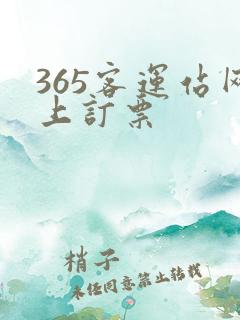 365客運佔网
上訂票
梢子
未经同意禁止转载